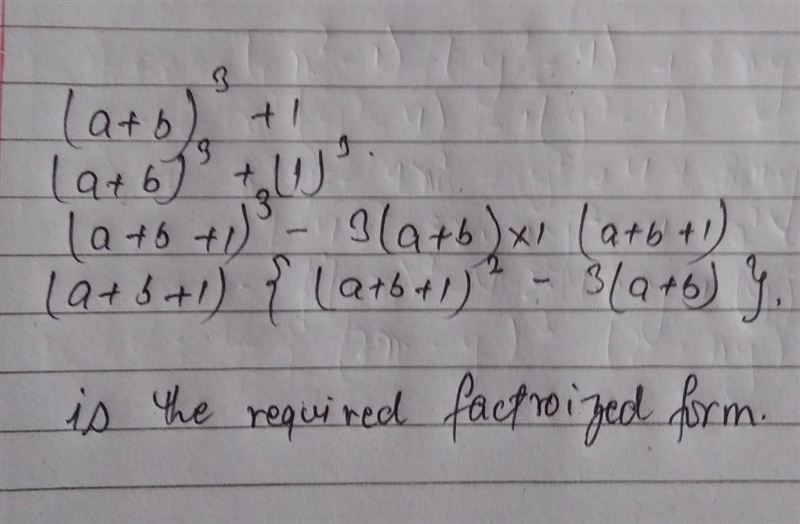 (a+b)³ + 1
(a+b)³ + (1)³.
(a+b+1)³ - 3(a+b)×1 (a+b+1)
(a+b+1) { (a+b+1)² - 3(a+b) }.
is the required factroized form.